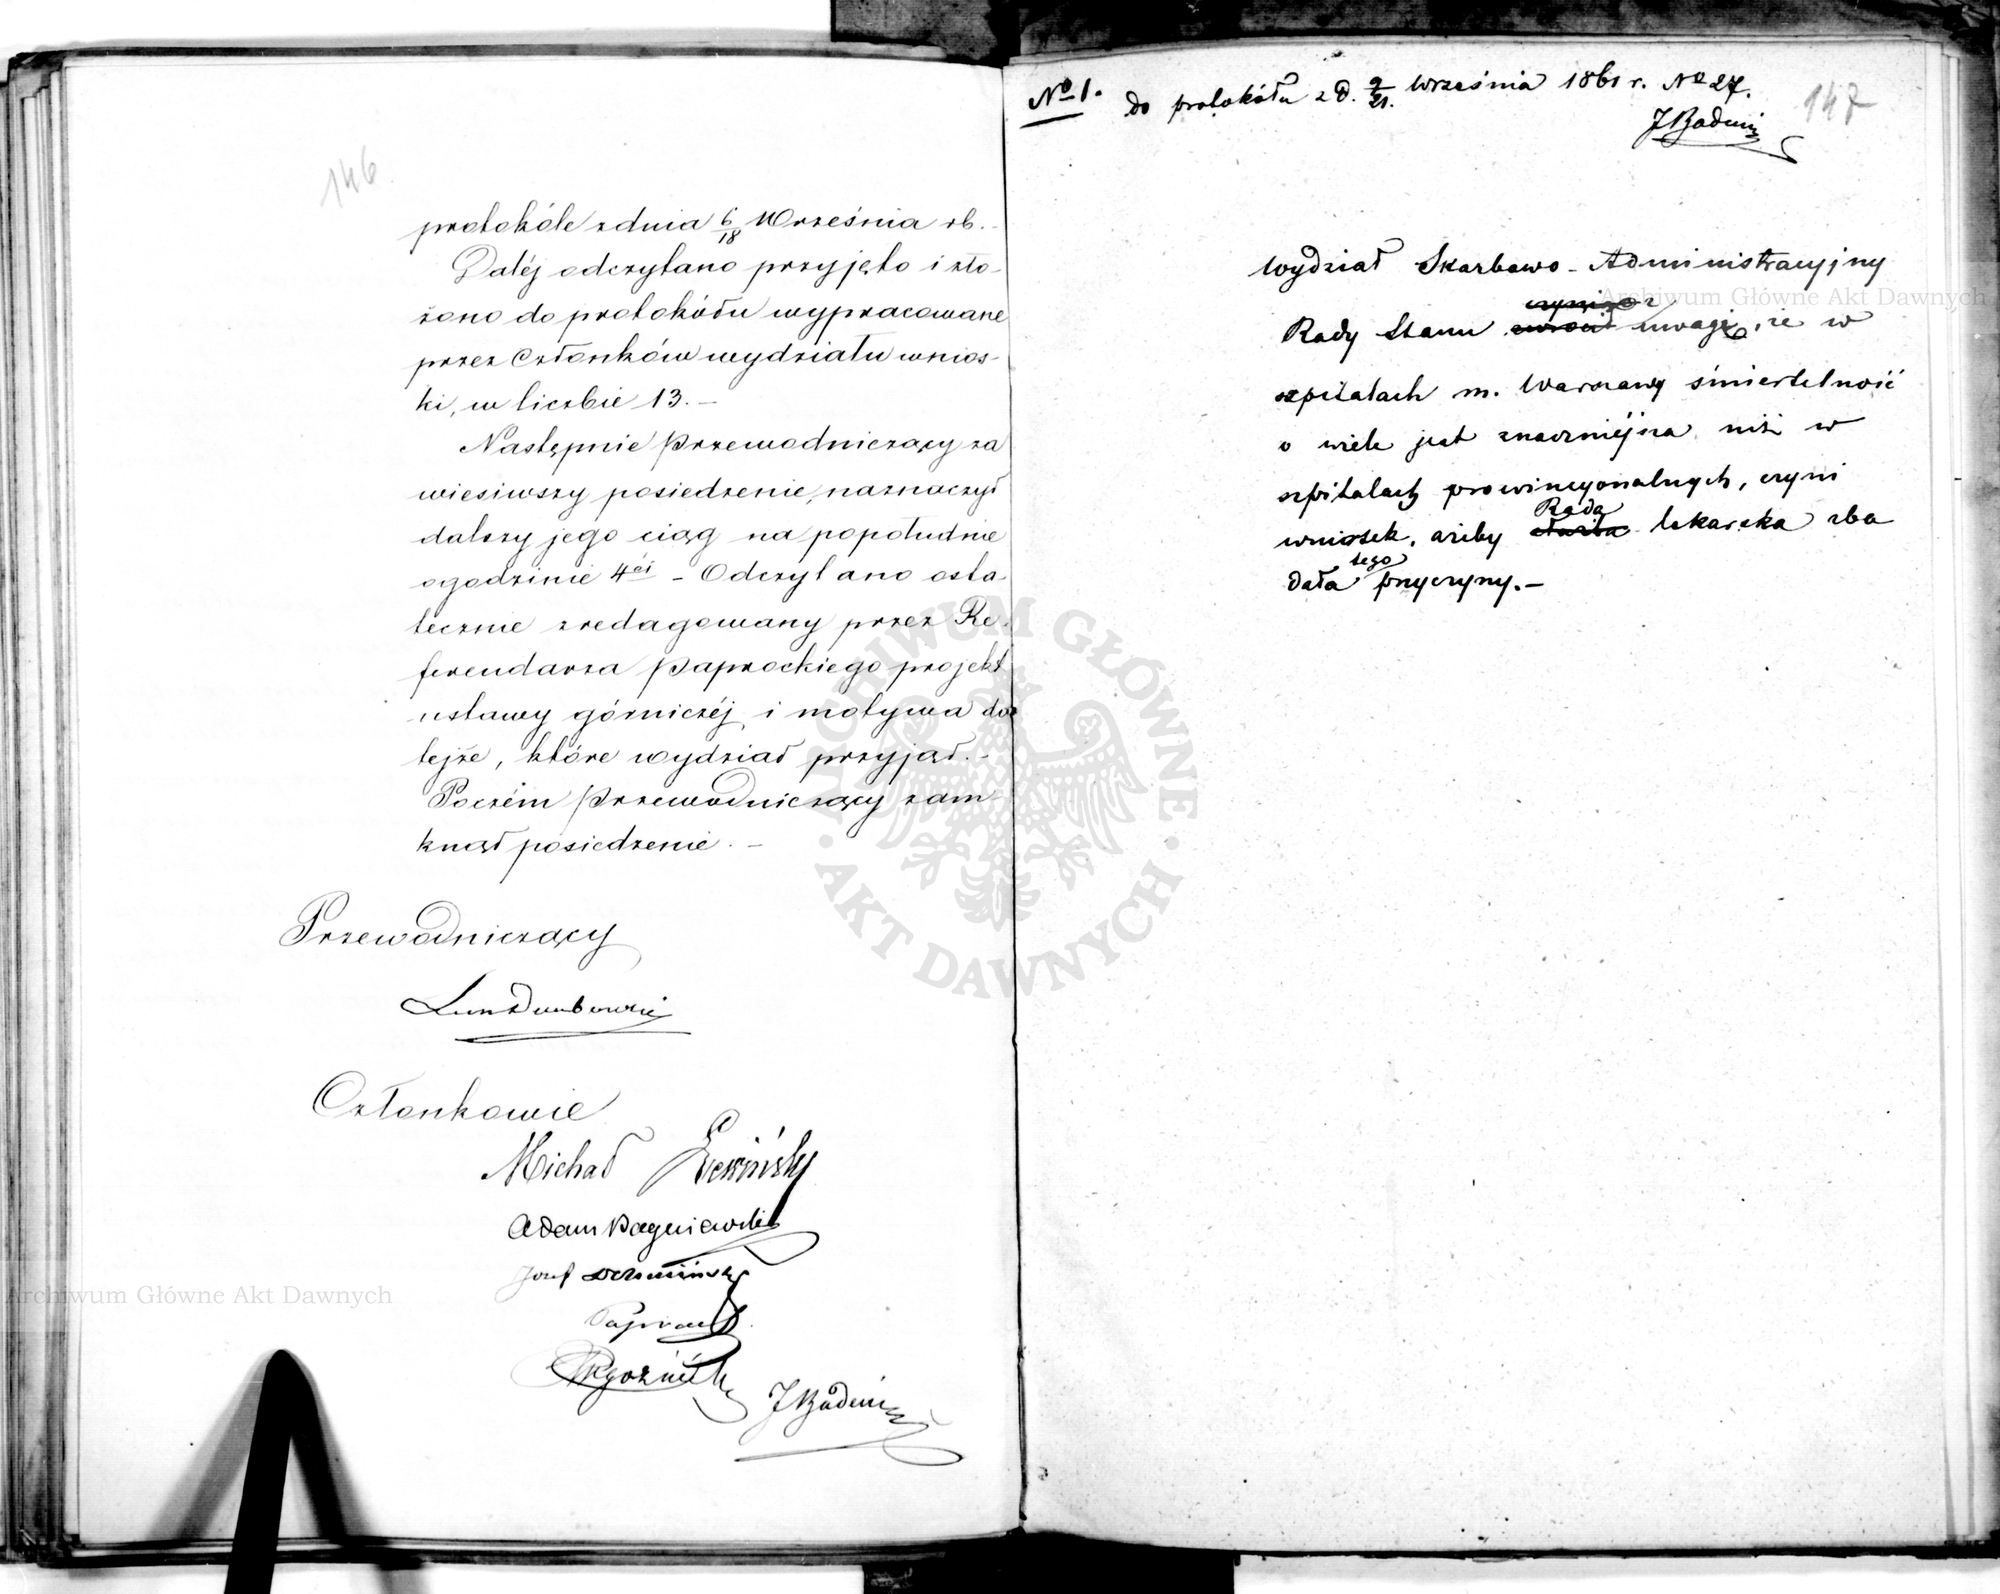 146
protokóle z dnia 6/18 Września rb.
Daléj odczytano przyjęto i zło-
żono do protokółu wypracowane
przez Członków wydziału wnios-
ki, w liczbie 13. —
Następnie Przewodniczący za
wiesiwszy posiedzenie, naznaczył
dalszy jego ciąg na popołudnie
o godzinie 4éj — Odczytano osta-
tecznie zredagowany przez Re-
ferendarza Paprockiego projekt
ustawy górniczéj i motywa do
tejże, które wydział przyjął. —
Poczém Przewodniczący zam-
knął posiedzenie. —
Przewodniczący
Członkowie
Michał
Adam Bagniewski
Józef
Paprocki
J Badeni
No 1. do protokółu z d. 9/21. Września 1861 r. No 27.
J Badeni
147
Wydział Skarbowo-Administracyjny
Rady Stanu uwagę, że w
szpitalach m. Warszawy śmiertelność
o wiele jest znaczniéjsza niż w
szpitalach prowincyonalnych, czyni
Rada
wniosek, ażeby służba lekarska zba
tego
dała przyczyny. —
Archiwum Główne Akt Dawnych
Archiwum Główne Akt Dawnych
ARCHIWUM GŁÓWNE · AKT DAWNYCH ·